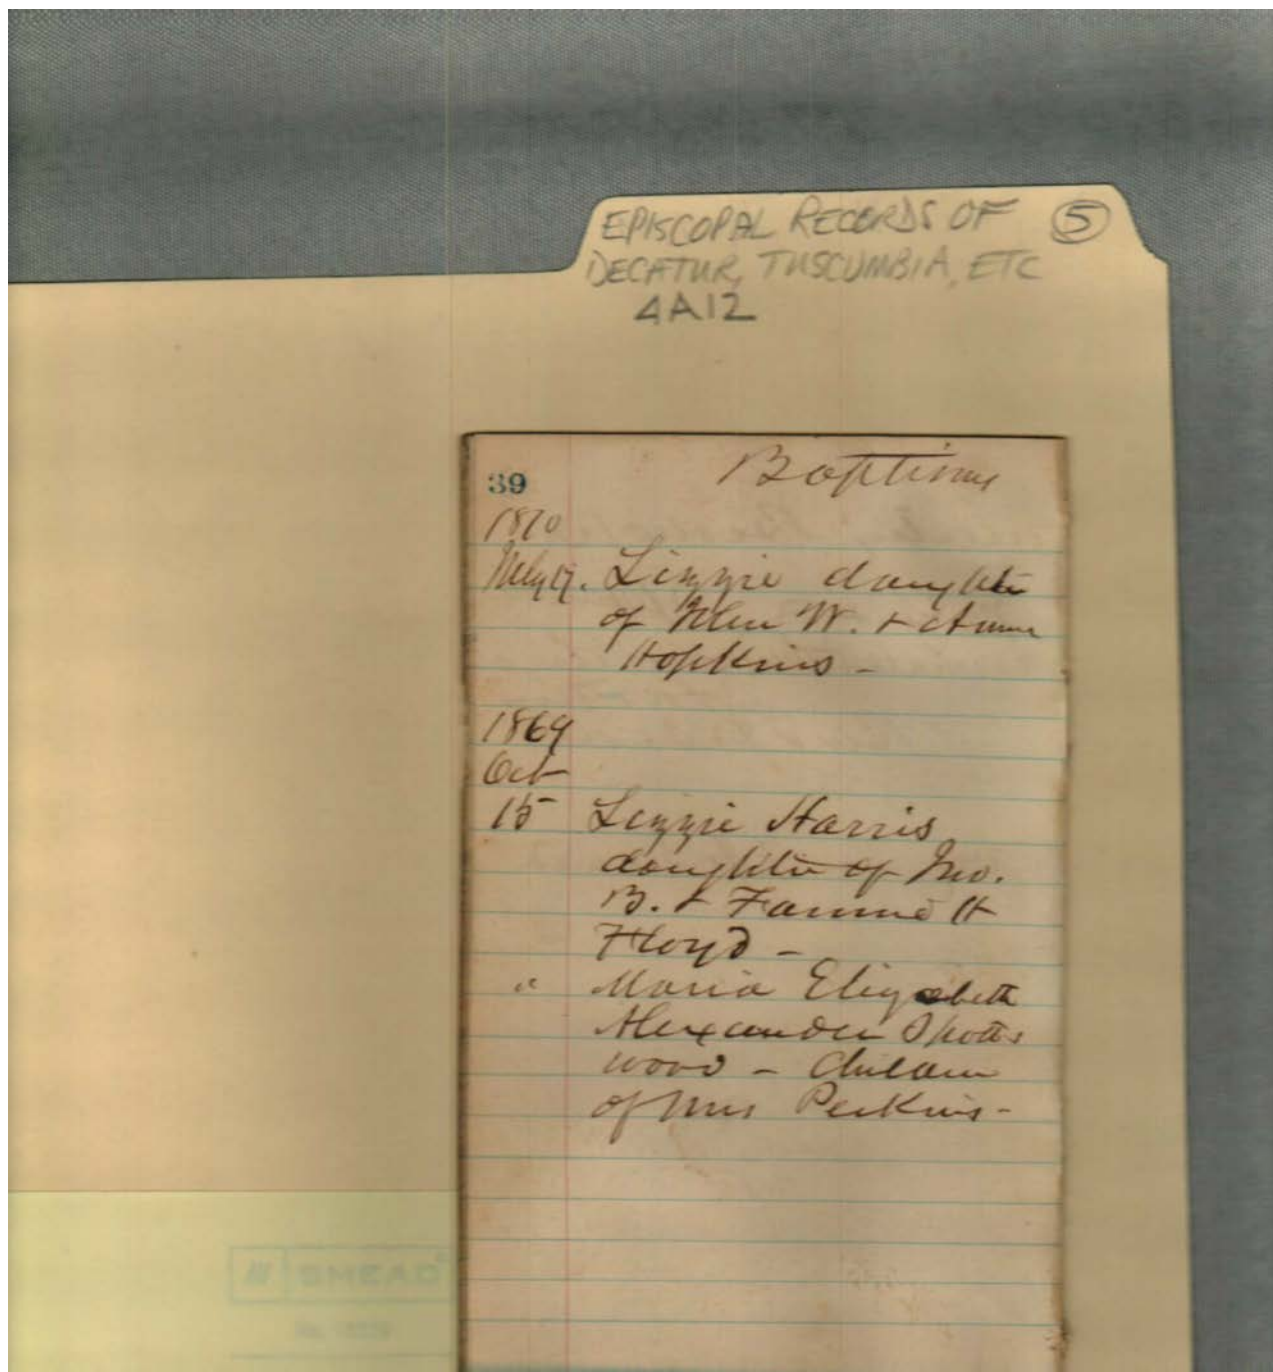 EPISCOPAL RECORDS OF 5
DECATUR, TUSCUMBIA, ETC
4A12
39 Baptisms
1870
Lizzie daughter
of W. + Anna
Hopkins -
1869
Oct
15 Lizzie Harris
daughter of Jno.
B. + Fannie H
Floyd -
" Maria Elizabeth
Alexander Spotts
wood - Children
of Mrs Perkins -
SMEAD